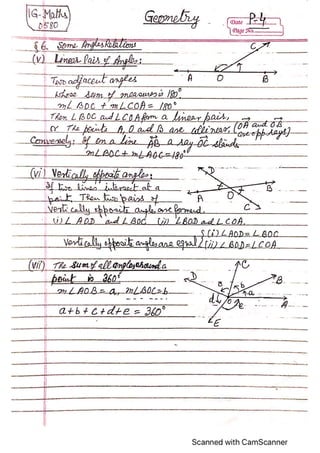 IG-Maths
0580
Geometry
Date P-4
Page No.
§ 6. Some Angles Relations
(v) Linear Pair of Angles:
Two adjacent angles
whose sum of measures is 180°
m∠BOC + m∠COA = 180°
Then ∠BOC and ∠COA form a linear pair,
or The points A, O and B are collinear (OA and OB
are opp rays)
Conversely: If on a line AB a ray OC stands
m∠BOC + m∠AOC = 180°
A O B C
(vi) Vertically opposite angles:
If two lines intersect at a
point, Then two pairs of
vertically opposite angles are formed.
(i) ∠AOD and ∠BOC (ii) ∠BOD and ∠COA.
Vertically opposite angles are equal { (i) ∠AOD = ∠BOC
(ii) ∠BOD = ∠COA
D B A O C
(vii) The sum of all angles around a
point is 360°
m∠AOB = a, m∠BOC = b
a + b + c + d + e = 360°
C D B A E O
a b c d e
Scanned with CamScanner